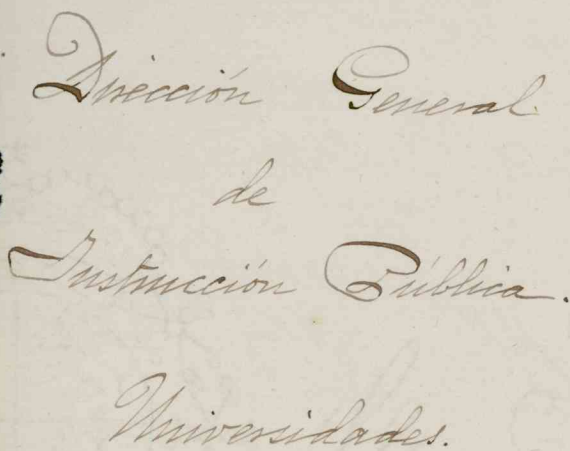 Dirección General
de
Instrucción Pública.
Universidades.